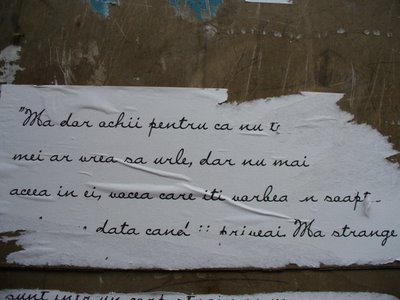 "Ma dor ochii pentru ca nu t
mei ar vrea sa urle, dar nu mai
aceea in ei, vocea care iti vorbea in soapt
data cand privai Ma strange
sunt intr un